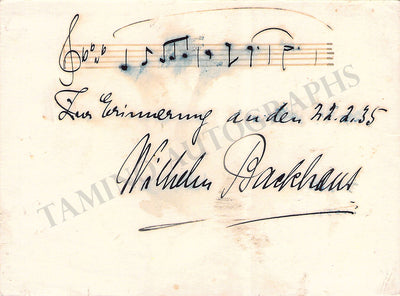 Zur Erinnerung an den 22.2.35
TAMINO AUTOGRAPHS
Wilhelm Backhaus